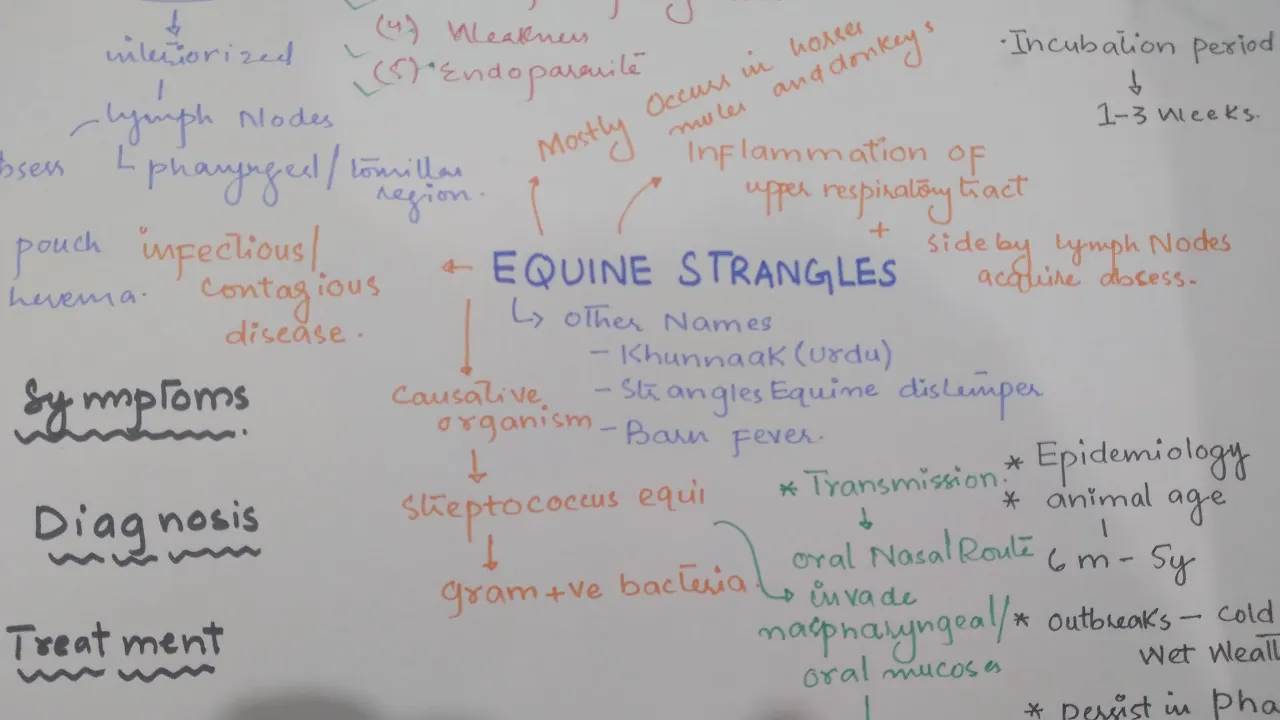 (4) Weakness
interiorized
(5) Endoparasite
Lymph Nodes
pharynged/tonsillar
region.
pouch
infectious/
contagious
disease.
Mostly Occurs in horses
mules and donkeys
Incubation period
1-3 weeks.
Inflammation of
upper respiratory tract
+ side by lymph Nodes
acquire absess.
EQUINE STRANGLES
other Names
- Khunnaak (Urdu)
- Strangles Equine distemper
- Barn Fever.
causative
organism
streptococcus equi
gram +ve bacteria.
Symptoms
Diagnosis
Treatment
* Transmission.
oral Nasal Route
invade
naspharyngeal/
oral mucosa
* Epidemiology
* animal age
6 m - 5y
* outbreaks - cold
Wet
* persist in